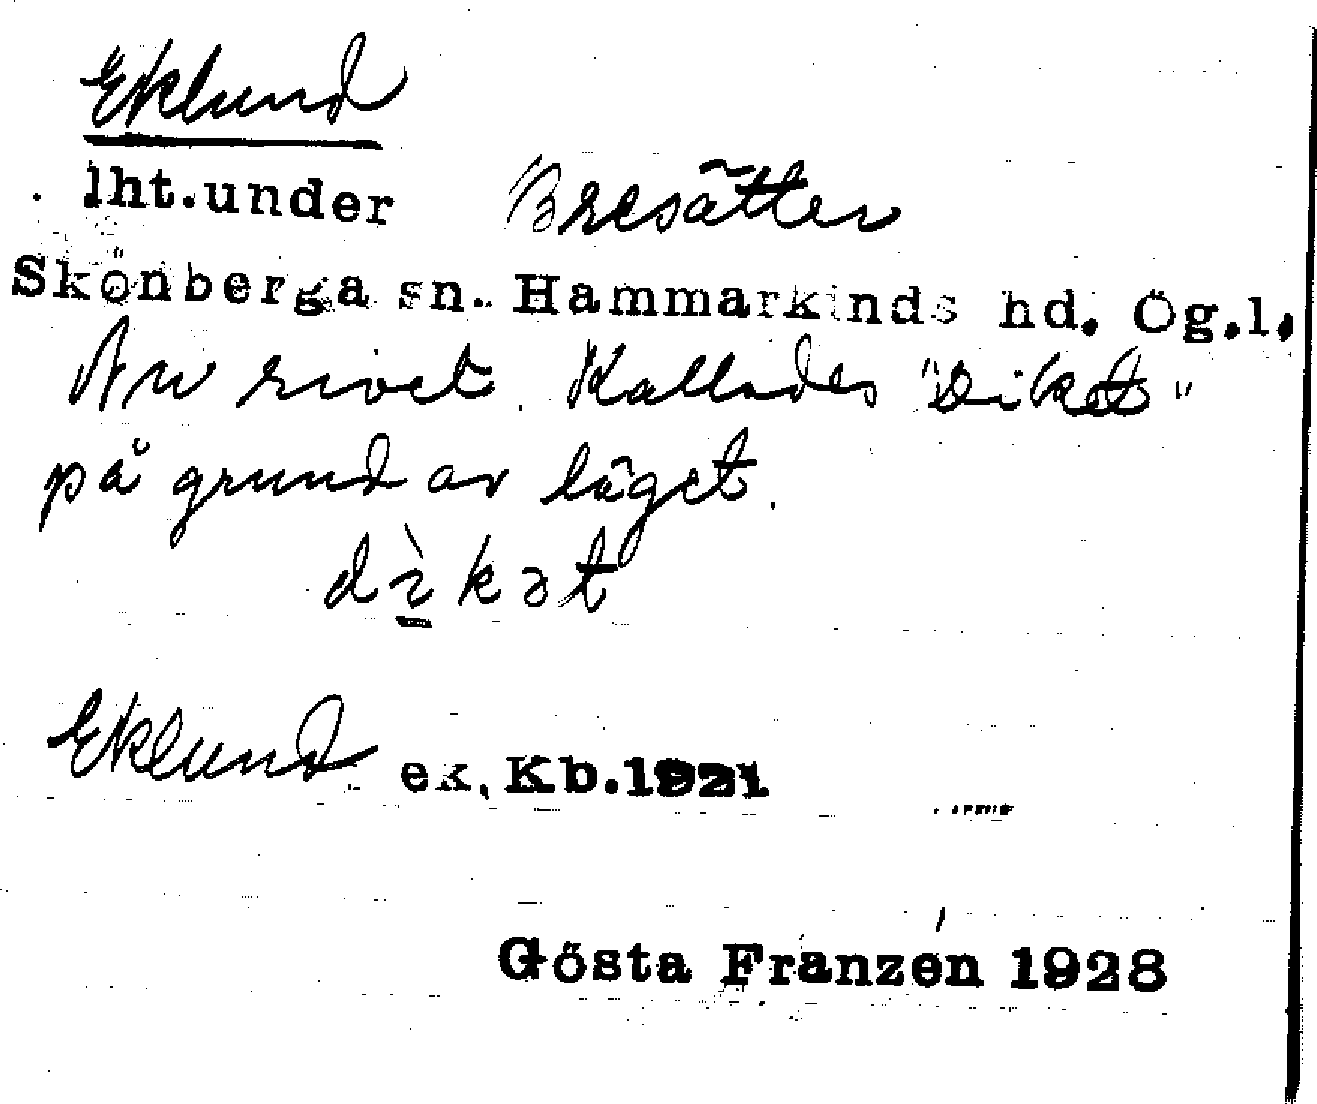 Eklund
lht. under Bresätter
Skönberga sn. Hammarkinds hd. Ög.l.
Är rivet. Kallades "Diket"
på grund av läget.
dìkət
Eklund ek. Kb. 1921
Gösta Franzén 1928